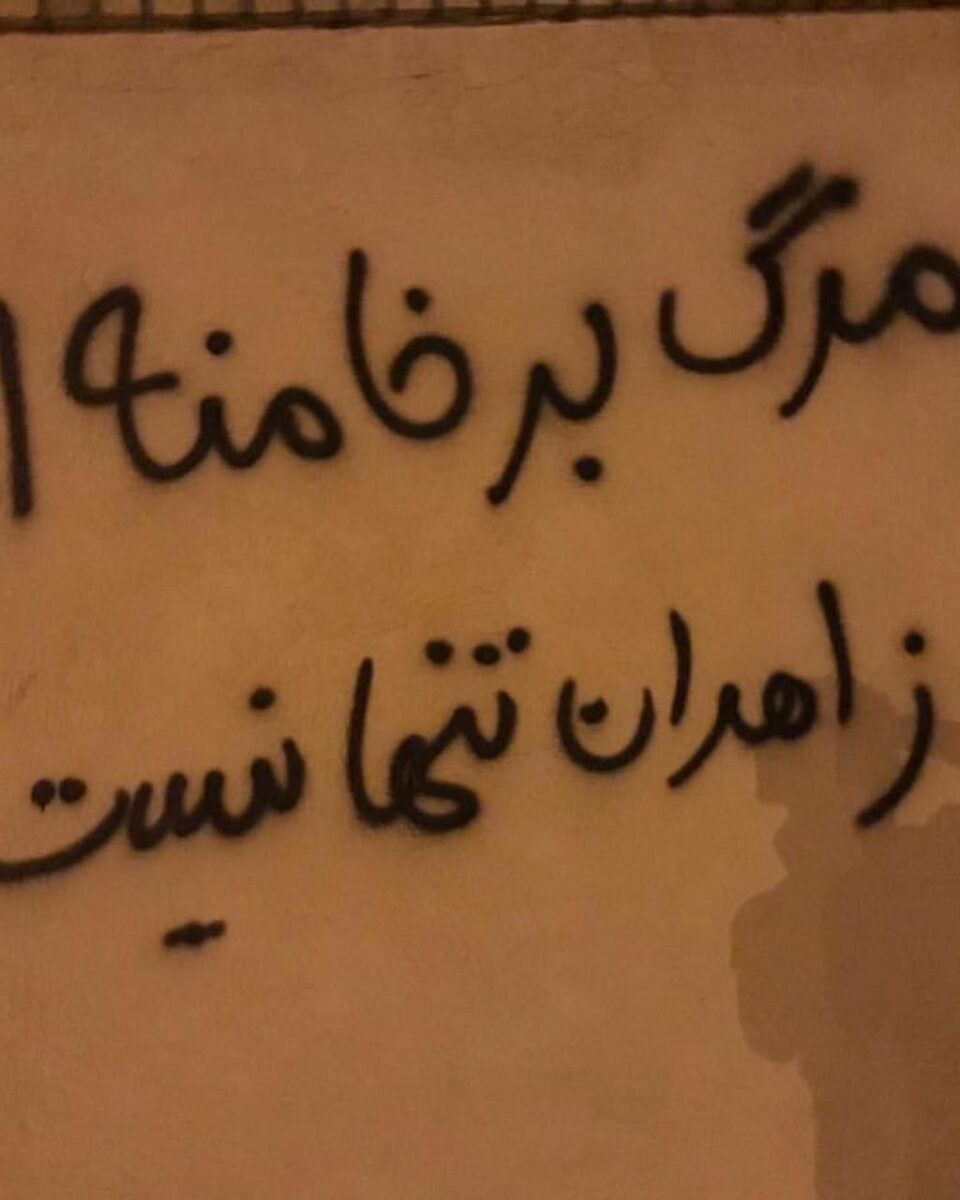 مرگ بر خامنه ا
زاهدان تنها نیست